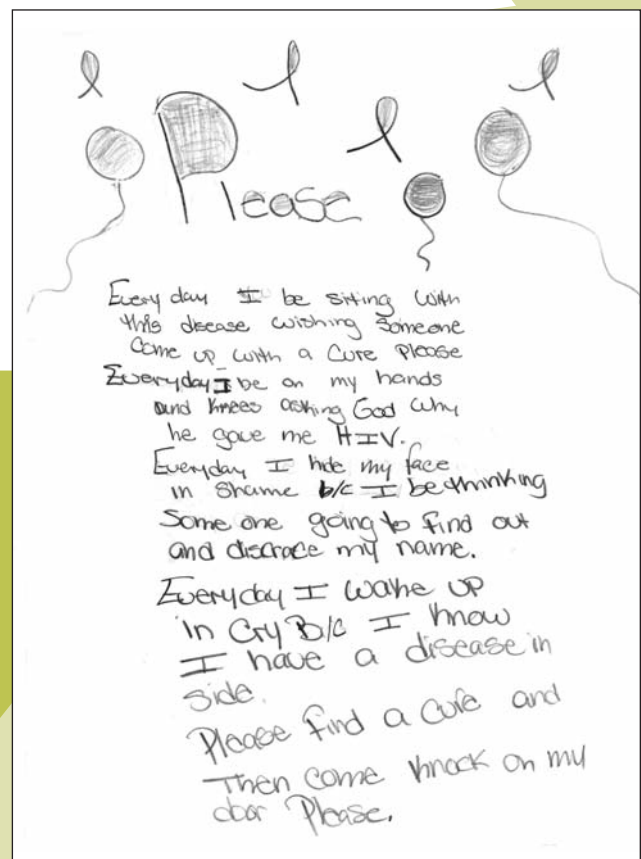 Please
Every day I be siting with
this disease wishing someone
come up with a cure please
Everyday I be on my hands
and knees asking God why
he gave me HIV.
Everyday I hide my face
in Shame b/c I be thinking
Some one going to find out
and discrace my name.
Everyday I wake up
in Cry B/c I know
I have a disease in
side.
Please find a cure and
Then come knock on my
door Please.